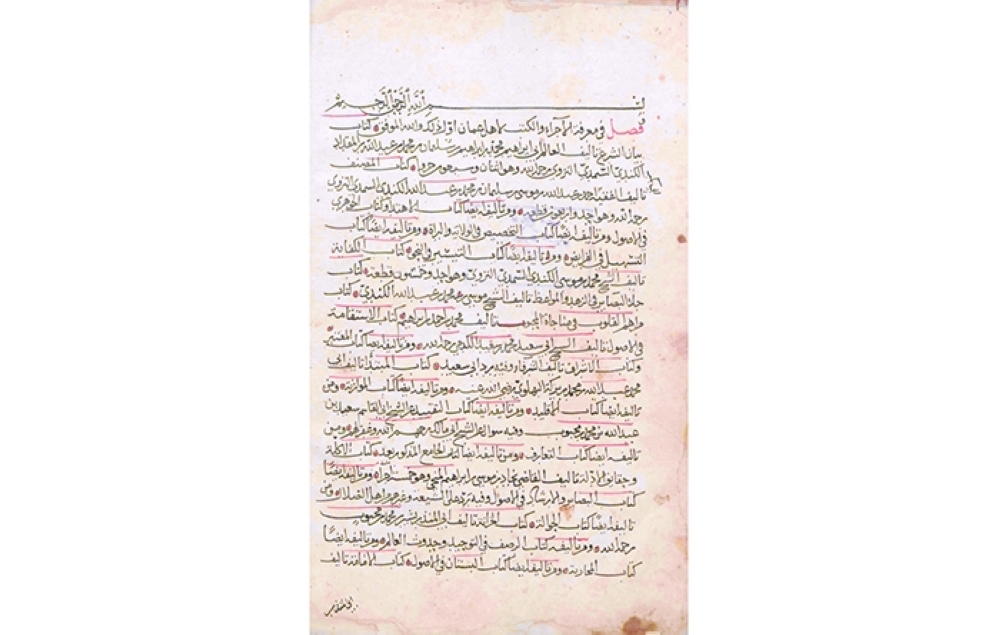 بسم الله الرحمن الرحيم
فصل في معرفة الأجزاء والكتب لأهل عمان أول ذلك والله الموفق كتاب
بيان الشرع تأليف العالم أبي إبراهيم محمد بن إبراهيم بن سليمان بن محمد بن عبد الله بن المقداد
الكندي السمدي النزوي رحمه الله وهو اثنان وسبعون جزوا كتاب المصنف
تأليف الفقيه احمد بن عبد الله بن موسى بن سليمان بن محمد بن عبد الله الكندي السمدي النزوي
رحمه الله وهو احد واربعون قطعه ومن تأليفه ايضا كتاب الاهتدا وكتاب الجوهري
في الاصول ومن تأليفه ايضا كتاب التخصيص في الولاية والبراة ومن تأليفه ايضا كتاب
التسهيل في الفرايض ومن تأليفه ايضا كتاب التيسير في النحو كتاب الكفاية
تأليف الشيخ محمد بن موسى الكندي السمدي النزوي وهو احد وخمسون قطعة كتاب
جلاء البصاير في الزهد والمواعظ تأليف الشيخ موسى بن محمد بن عبد الله الكندي كتاب
مراهم القلوب في مناجاة المحبوب تأليف محمد بن احمد بن إبراهيم كتاب الاستقامة
في الاصول تأليف الشيخ أبي سعيد محمد بن سعيد الكدمي رحمه الله ومن تأليفه ايضا كتاب المعتبر
وكتاب الاشراف تأليف وفيه رد أبي سعيد كتاب المبتدا تأليف أبي
محمد عبد الله بن محمد بن بركة البهلوي رضي الله عنه ومن تأليفه ايضا كتاب الموازنة ومن
تأليفه ايضا كتاب الاقليد ومن تأليفه ايضا كتاب التقييد عن الشيخ أبي القاسم سعيد بن
عبد الله بن محمد بن محبوب وفيه سوال عن الشيخ أبي مالك رحمهم الله وغفر لهم ومن
تأليفه ايضا كتاب التعارف ومن تأليفه ايضا كتاب الجامع المذكور بعد كتاب الاكلة
وحقايق الادلة تأليف القاضي نجاد بن موسى بن إبراهيم المنحي وهو خمسة اجزاء ومن تأليفه ايضا
كتاب البصاير والارشاد في الاصول وفيه رد على الشيعة وغيرهم من اهل الضلال ومن
تأليفه ايضا كتاب كتاب الخزانة تأليف أبي المنذر بشير بن محمد بن محبوب
رحمه الله ومن تأليفه كتاب الرصف في التوحيد وحدوث العالم ومن تأليفه ايضا
كتاب المحاربة ومن تأليفه ايضا كتاب البستان في الاصول كتاب الامانة تأليف